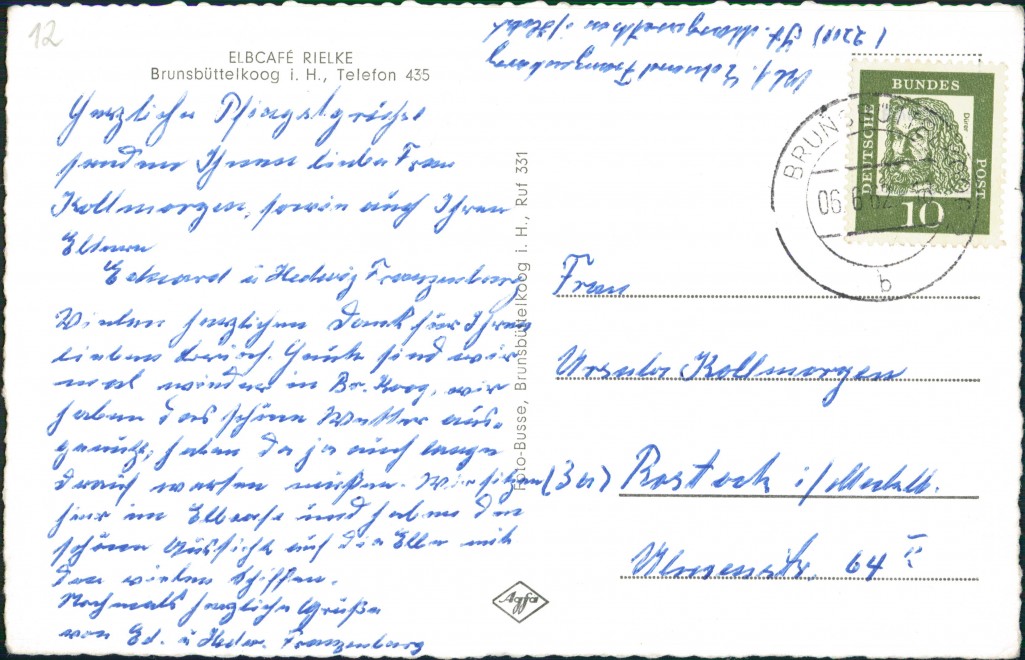 12
ELBCAFÉ RIELKE
Brunsbüttelkoog i. H., Telefon 435
Herzliche Pfingstgrüße
senden Ihnen liebe Frau
Kollmorgen, sowie auch Ihren
Eltern
Eduard u Hedwig Franzenburg
Vielen herzlichen Dank für Ihren
lieben Brief. Heute sind wir
mal wieder in Br. Koog, wir
haben das schöne Wetter aus-
genutzt, haben da ja auch lange
drauf warten müßen. Wir sitzen
hier im Elbcafe und haben die
schöne Aussicht auf die Elbe mit
den vielen Schiffen.
Nochmals herzliche Grüße
von Ed. u Hedw. Franzenburg
Foto-Busse, Brunsbüttelkoog i. H., Ruf 331
Agfa
Abs. Eduard Franzenburg
(2211) St. Margarethen i/Holst
BRUNSBÜTTELKOOG
06.6.62
b
DEUTSCHE BUNDESPOST
Dürer
10
Frau
Ursula Kollmorgen
(3a) Rostock i/Mecklb.
Ulmenstr. 64 II